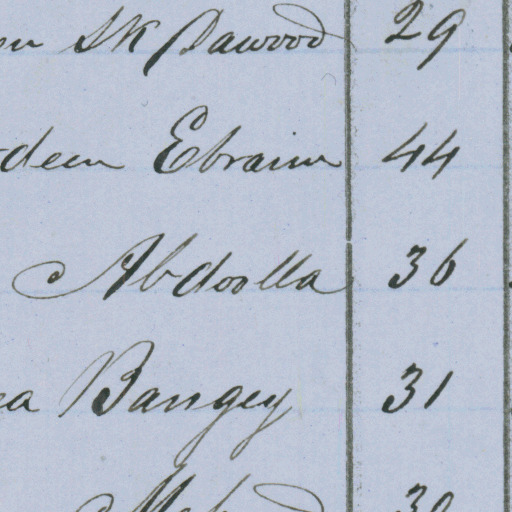 SK Dawood 29
deen Ebraim 44
Abdoolla 36
Bangey 31
30